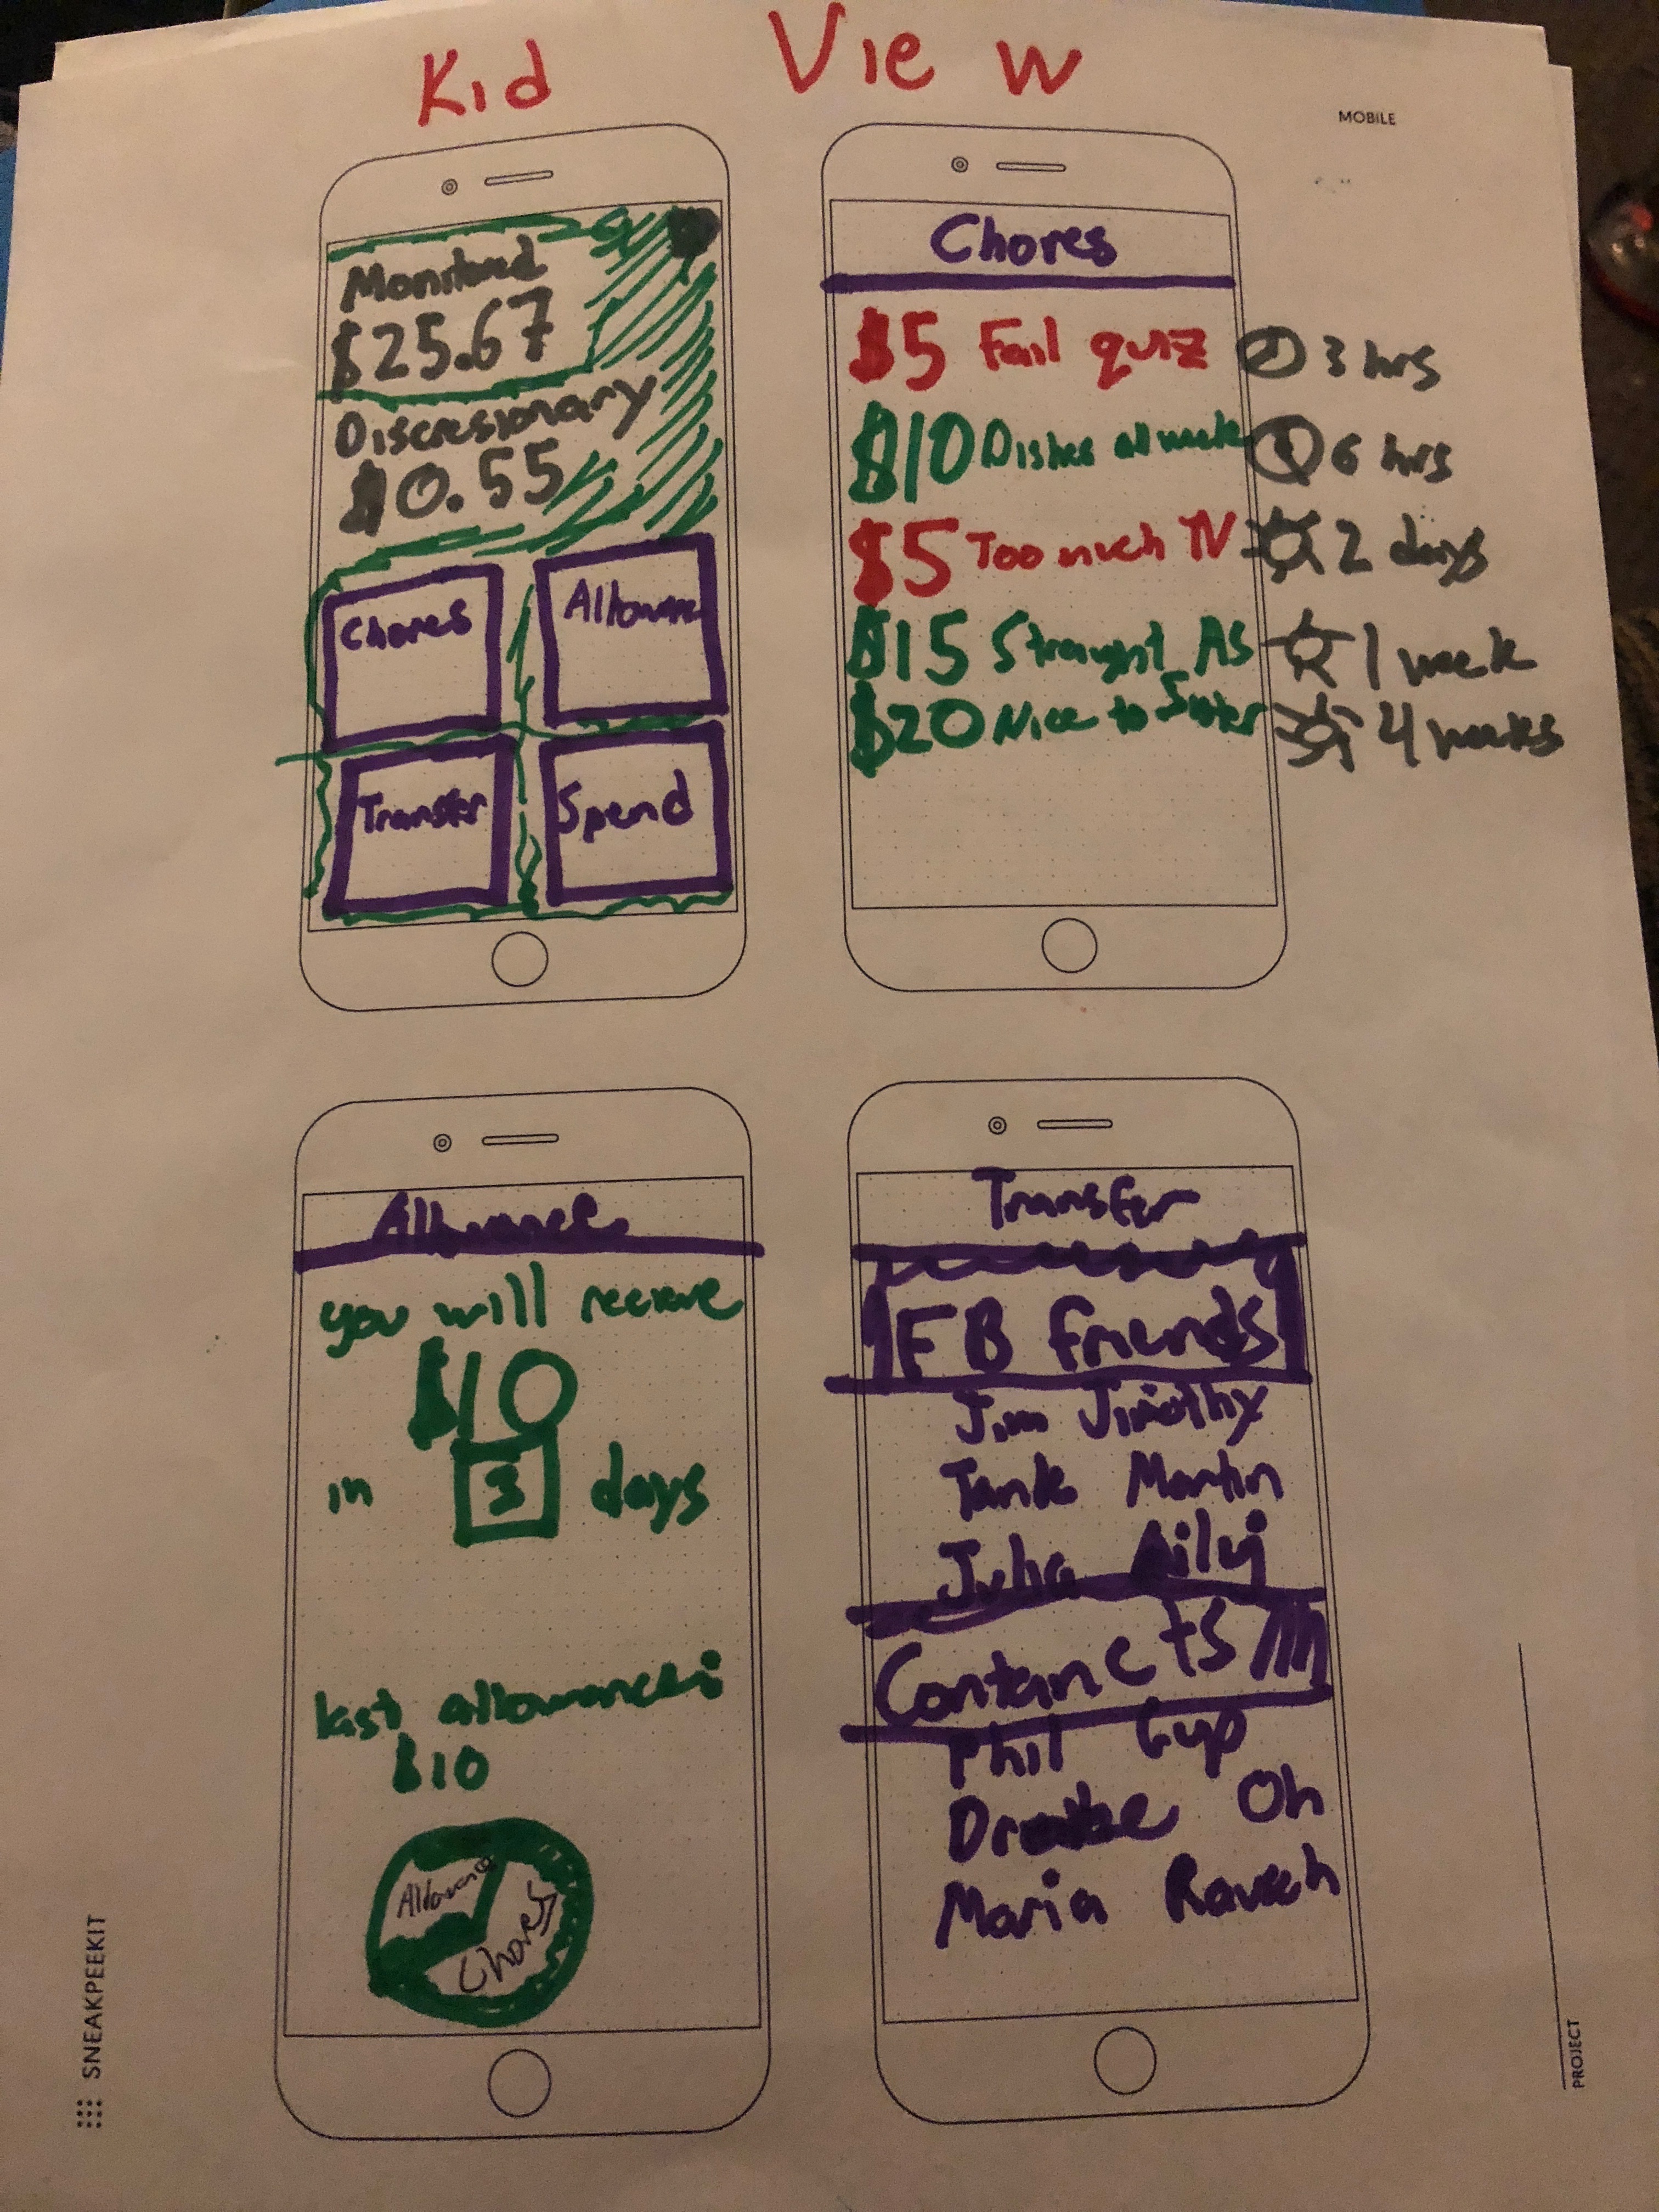 Kid View
MOBILE
Monitored
$25.67
Discresionary
$0.55
Chores
Allowance
Transfer
Spend
Chores
$5 Fail quiz 3 hrs
$10 Dishes all week 6 hrs
$5 Too much TV 2 days
$15 Straight As 1 week
$20 Nice to Sister 4 weeks
Allowance
you will recieve
$10
in 3 days
last allowance:
$10
Allowance
Chores
Transfer
FB friends
Jim Jimothy
Tank Martin
Julia Ailuj
Phil Cup
Drake Oh
Maria Rausch
SNEAKPEEKIT
PROJECT